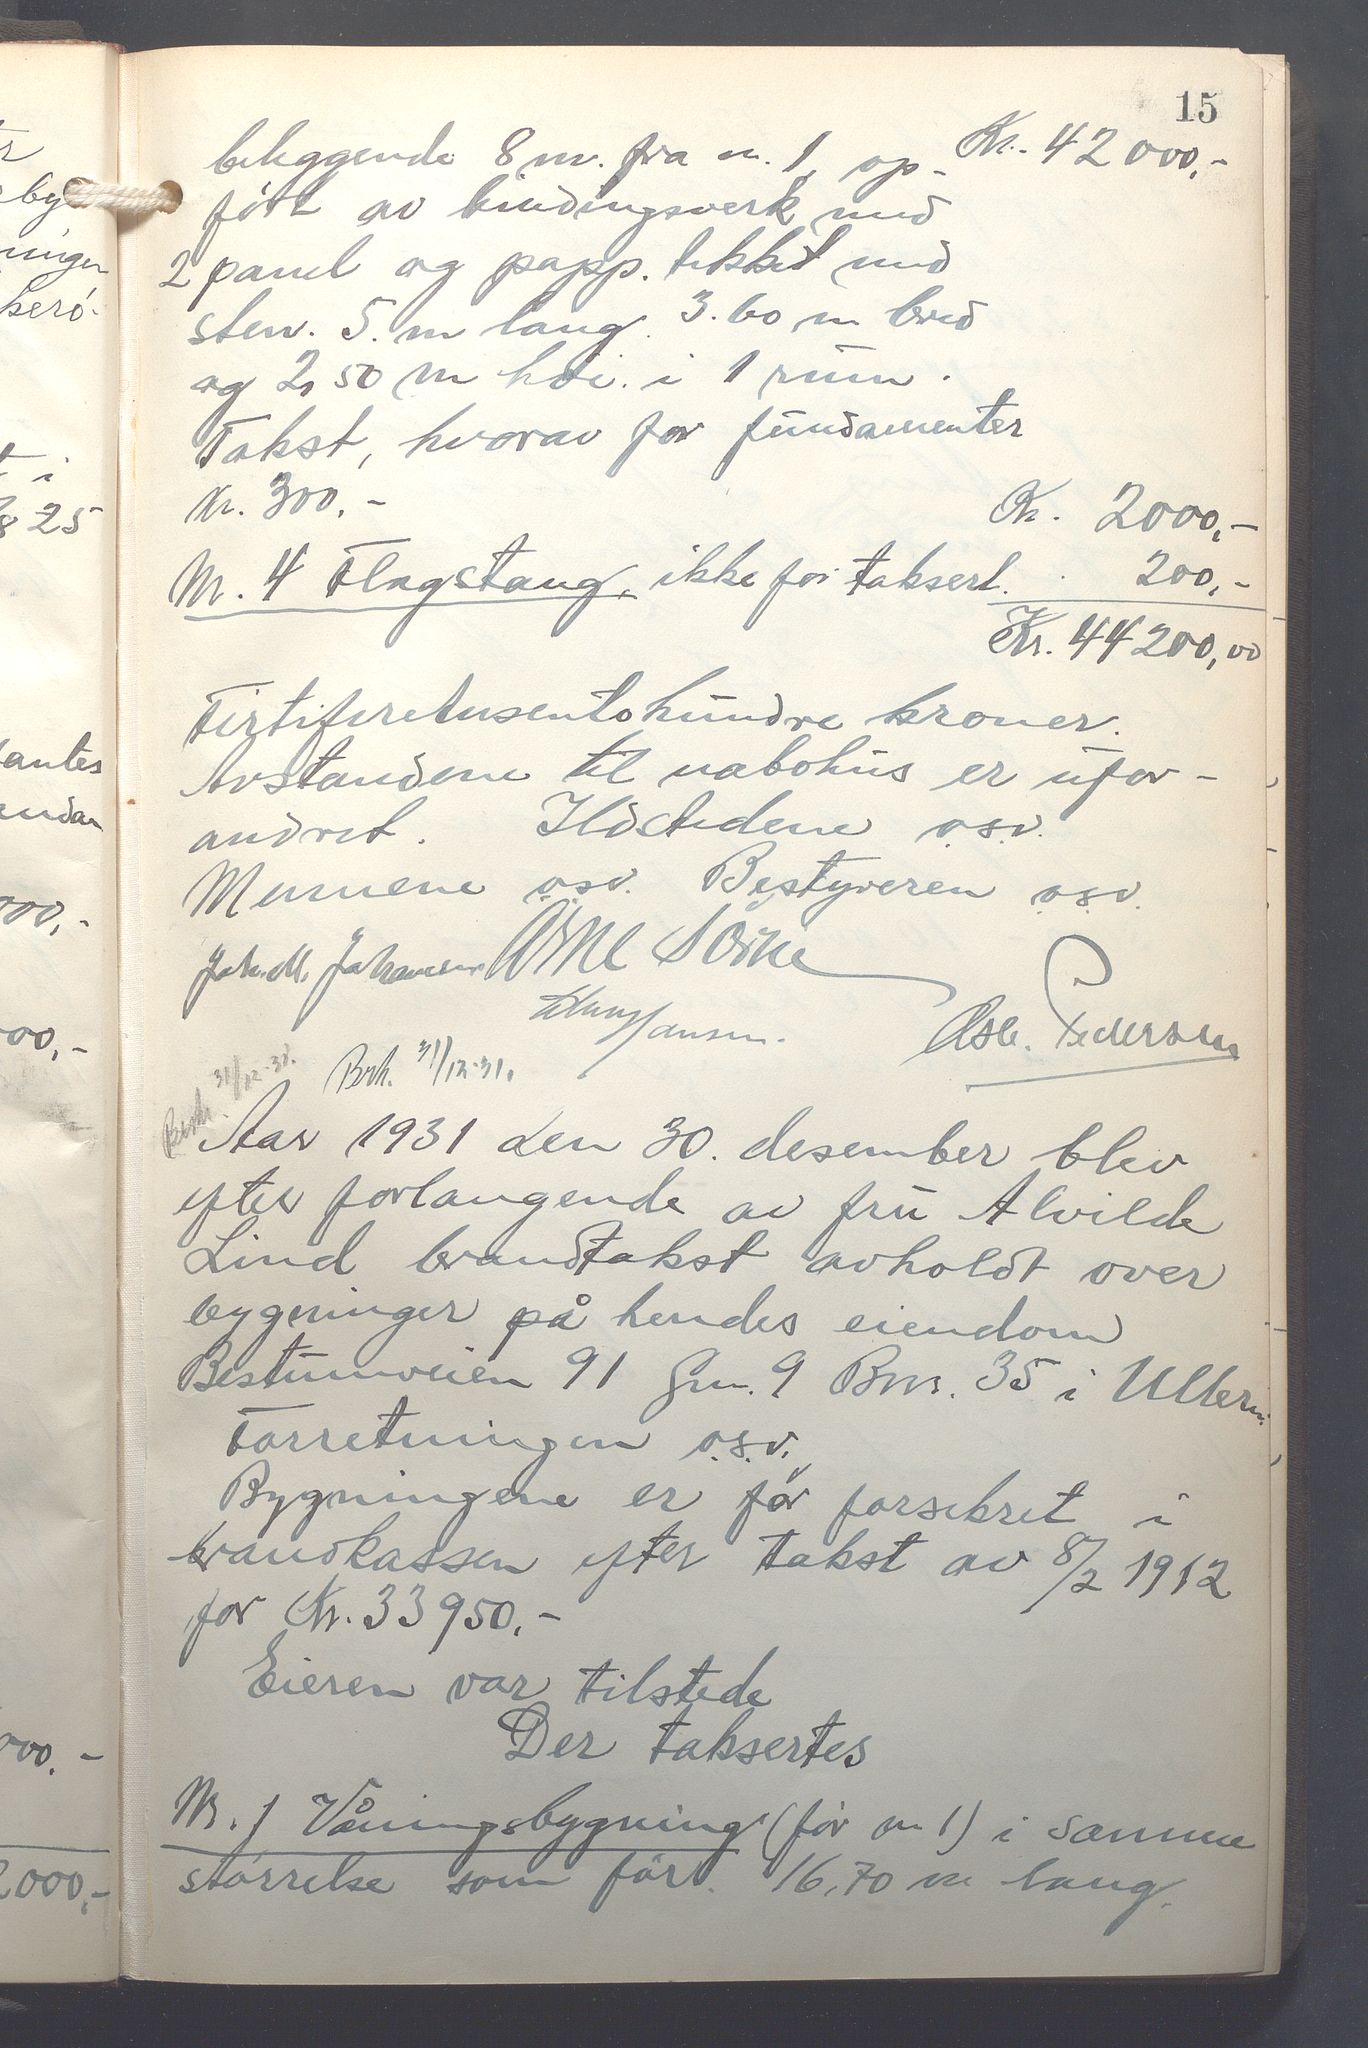 15
beliggende 8 m. fra nr. 1, op- Kr. 42000,-
ført av bindingsverk med
2 panel og papp. tekket med
sten. 5. m lang. 3.60 m bred
og 2,50 m høi. i 1 rum.
Takst, hvorav for fundamenter
Kr. 300,- Kr. 2000,-
Nr. 4 Flagstang, ikke før taksert. 200,-
Kr. 44200,00
Firtifiretusentohundre kroner.
Avstandene til nabohus er ufor-
andret. Ildstedene o.s.v.
Mennene o.s.v. Bestyreren o.s.v.
Joh. M. Johannesen Arne
Hansen. Osc. Pedersen
Besk. 31/12-31. Besk. 31/12-31.
Aar 1931 den 30. desember blev
efter forlangende av fru Alvilde
Lind brandtakst avholdt over
bygninger på hendes eiendom
Bestumveien 91 Gnr. 9 Bnr. 35 i Ullern.
Forretningen o.s.v.
Bygningene er før forsikret i
brandkassen efter takst av 8/2 1912
for Kr. 33950,-
Eieren var tilstede
Der taksertes
Nr. 1 Våningsbygning (før nr 1) i samme
størrelse som før. 16,70 m lang.